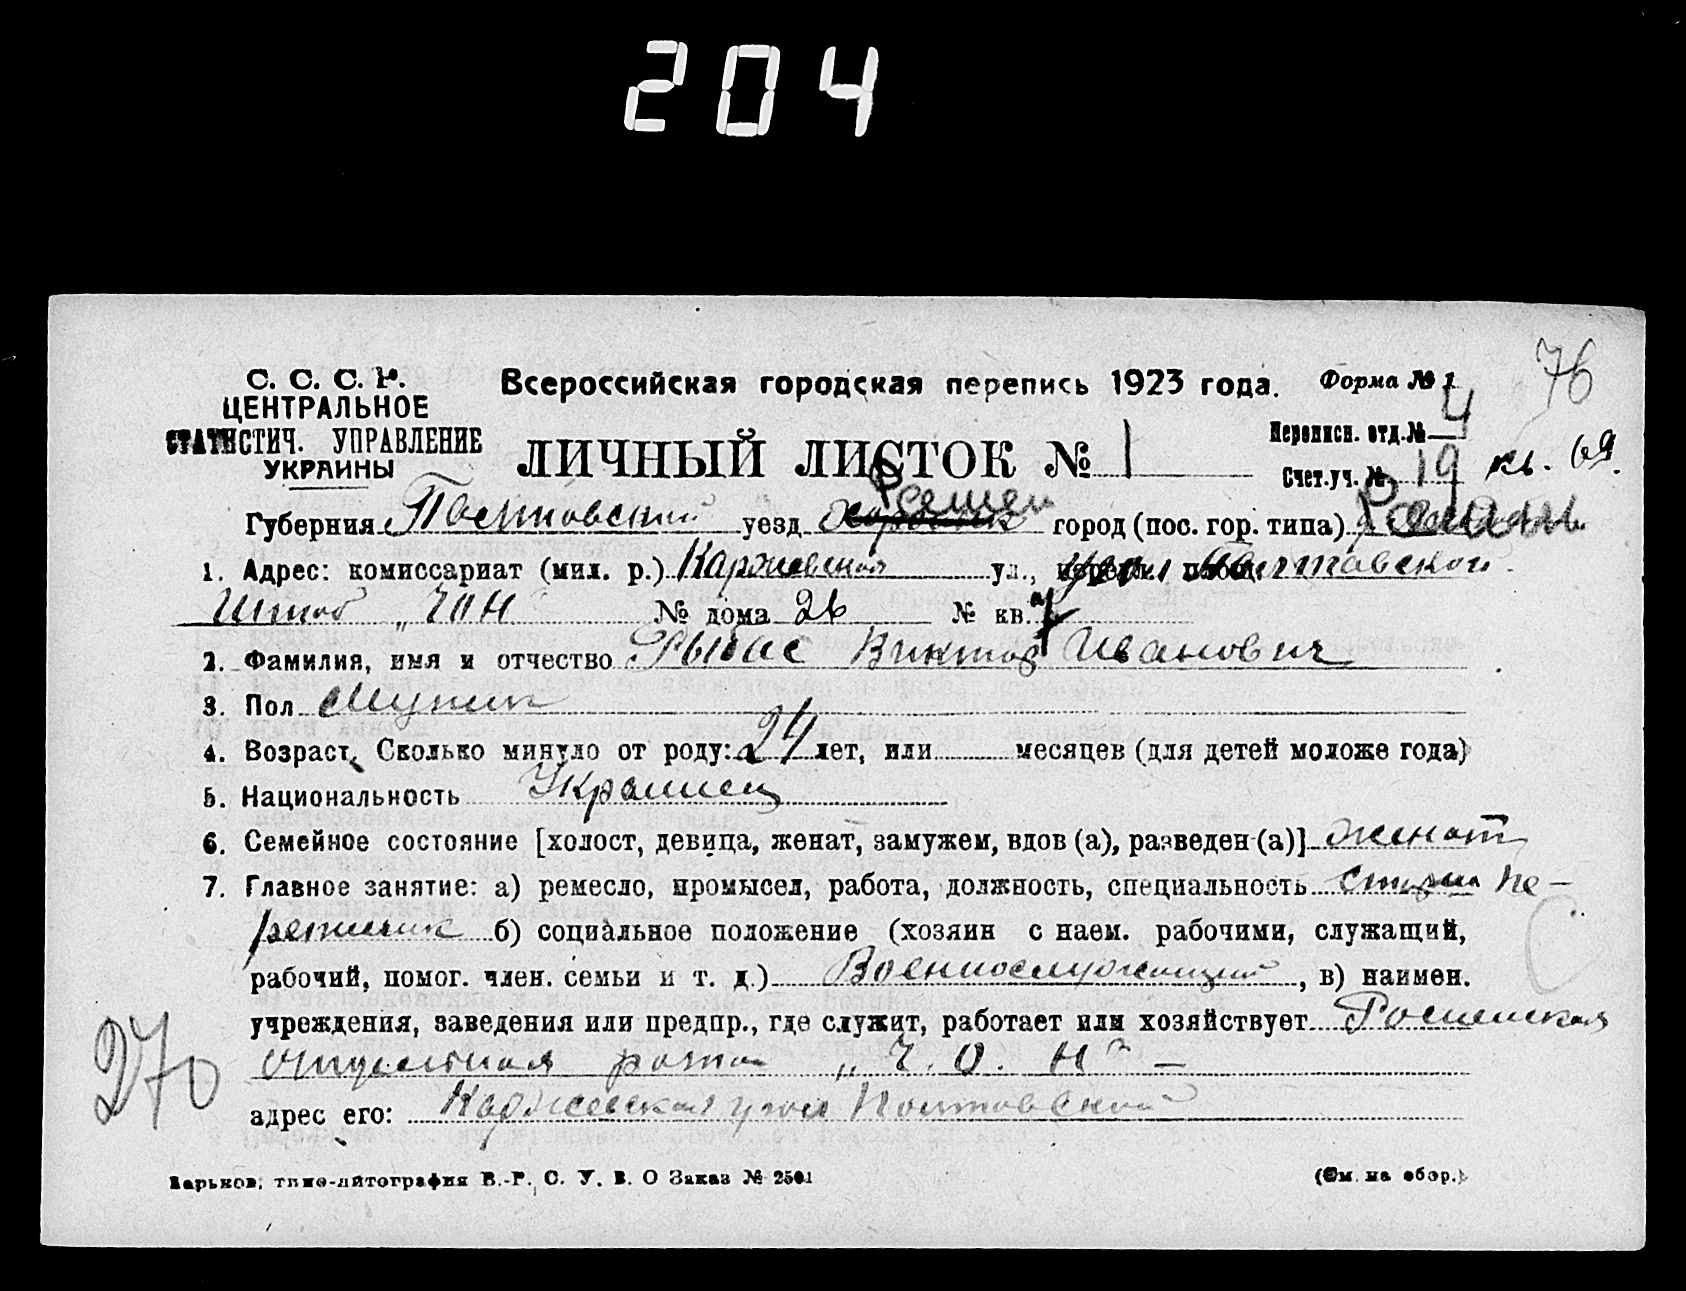 204
76
С. С. С. Р. Всероссийская городская перепись 1923 года. Форма № 1
ЦЕНТРАЛЬНОЕ
СТАТИСТИЧ. УПРАВЛЕНИЕ
УКРАИНЫ
ЛИЧНЫЙ ЛИСТОК № 1
Переписн. отд. № 4
Счет. уч. № 19 кв. 69.
Губерния Полтавский уезд город (пос. гор. типа)
1. Адрес: комиссариат (мил. р.) Каржевская ул., Полтавской
Штаб „ЧОН № дома 26 № кв.
2. Фамилия, имя и отчество Рыбас Виктор Иванович
3. Пол
4. Возраст. Сколько минуло от роду: 24 лет, или месяцев (для детей моложе года)
5. Национальность Украинец
6. Семейное состояние [холост, девица, женат, замужем, вдов (а), разведен (а)] женат
7. Главное занятие: а) ремесло, промысел, работа, должность, специальность
б) социальное положение (хозяин с наем. рабочими, служащий,
рабочий, помог. член. семьи и т. д.) Военнослужащий, в) наимен.
учреждения, заведения или предпр., где служит, работает или хозяйствует Роменская
отдельная рота „Ч. О. Н" —
адрес его: Каржевская угол Полтавской
270
Харьков, типо-литография В.-Р. С. У. В. О Заказ № 2501 (См. на обор.)